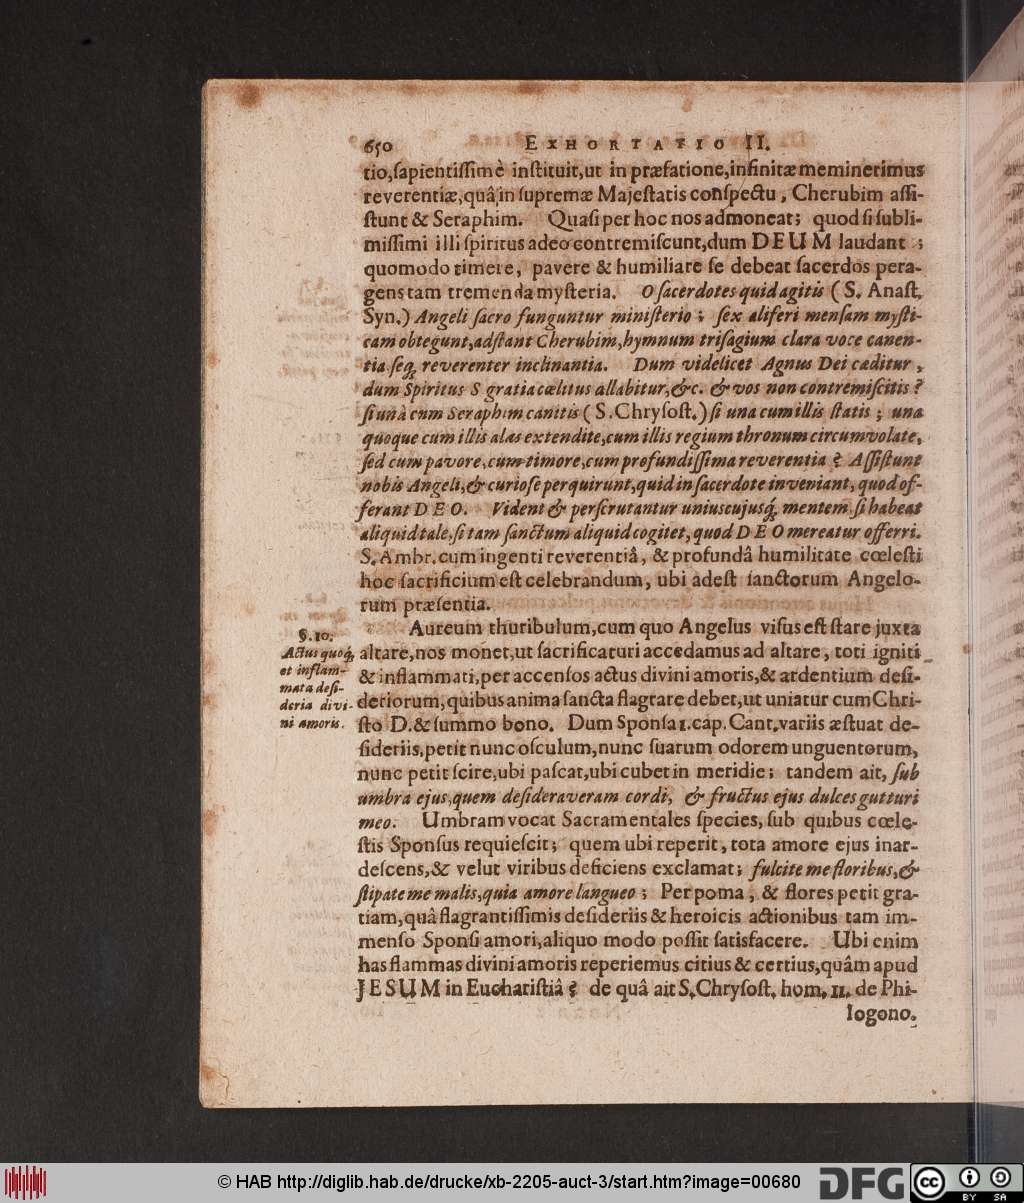 650 EXHORTATIO II.
tio,ſapientiſſimè inſtituit,ut in præfatione,infinitæ meminerimus
reverentiæ,quâ in ſupremæ Majeſtatis conſpectu, Cherubim aſſi-
ſtunt & Seraphim. Quaſi per hoc nos admoneat; quod ſi ſubli-
miſſimi illi ſpiritus adeo contremiſcunt,dum DEUM laudant ;
quomodo timere, pavere & humiliare ſe debeat ſacerdos pera-
gens tam tremenda myſteria. O ſacerdotes quid agitis (S. Anaſt.
Syn.) Angeli ſacro funguntur miniſterio; ſex aliferi menſam myſti-
cam obtegunt,adſtant Cherubim,hymnum triſagium clara voce canen-
tia.ſeq́ reverenter inclinantia. Dum videlicet Agnus Dei cæditur,
dum Spiritus S gratia cælitus allabitur,&c. & vos non contremiſcitis?
ſi unà cum Seraphim canitis (S.Chryſoſt.) ſi una cum illis ſtatis; una
quoque cum illis alas extendite,cum illis regium thronum circumvolate,
ſed cum pavore,cum timore,cum profundiſſima reverentia? Aſſiſtunt
nobis Angeli,& curioſe perquirunt,quid in ſacerdote inveniant, quod of-
ferant DEO. Vident & perſcrutantur uniuscujusq́, mentem,ſi habeat
aliquid tale,ſi tam ſanctum aliquid cogitet, quod DEO mereatur offerri.
S. Ambr. cum ingenti reverentiâ, & profundâ humilitate cœleſti
hoc ſacrificium eſt celebrandum, ubi adeſt ſanctorum Angelo-
rum præſentia.
§.10.
Actus quoq́,
et inflam-
mata deſi-
deria divi-
ni amoris.
Aureum thuribulum,cum quo Angelus viſus eſt ſtare juxta
altare,nos monet,ut ſacrificaturi accedamus ad altare, toti igniti
& inflammati,per accenſos actus divini amoris,& ardentium deſi-
deriorum,quibus anima ſancta flagrare debet,ut uniatur cum Chri-
ſto D.& ſummo bono. Dum Sponſa 1.cap. Cant.variis æſtuat de-
ſideriis,petit nunc oſculum,nunc ſuarum odorem unguentorum,
nunc petit ſcire,ubi paſcat,ubi cubet in meridie; tandem ait, ſub
umbra ejus,quem deſideraveram cordi, & fructus ejus dulces gutturi
meo. Umbram vocat Sacramentales ſpecies, ſub quibus cœle-
ſtis Sponſus requieſcit; quem ubi reperit, tota amore ejus inar-
deſcens,& velut viribus deficiens exclamat; fulcite me floribus,&
ſtipate me malis,quia amore langueo; Per poma, & flores petit gra-
tiam,quâ flagrantiſſimis deſideriis & heroicis actionibus tam im-
menſo Sponſi amori,aliquo modo poſſit ſatisfacere. Ubi enim
has flammas divini amoris reperiemus citius & certius,quâm apud
JESUM in Euchariſtiâ? de quâ ait S.Chryſoſt. hom. 11. de Phi-
logono.
© HAB http://diglib.hab.de/drucke/xb-2205-auct-3/start.htm?image=00680
DFG
cc BY SA